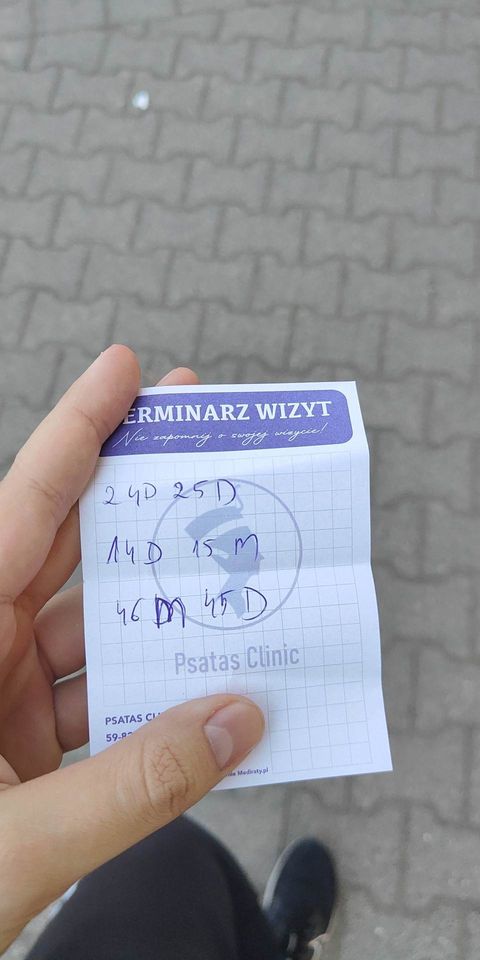 ERMINARZ WIZYT
Nie zapomnij o swojej wizycie!
24D 25D
14D 15M
46M 45D
Psatas Clinic
PSATAS CL
59-8
Mediraty.pl